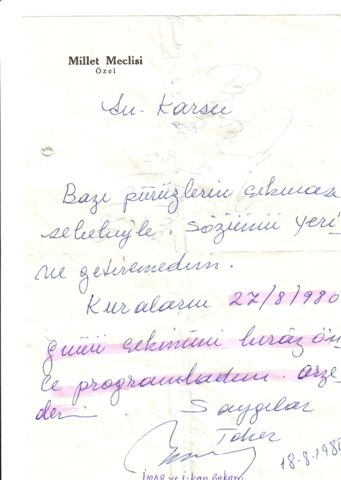 Millet Meclisi
Özel
Sn. Karsu
Bazı pürüzlerin çıkması
sebebiyle, sözümü yeri-
ne getiremedim.
Kuraların 27/8/1980
günü çekimini biraz ön-
ce programladım. arze-
derim
Saygılar
Toker
18.8.1980
İMAR ve İskan Bakanı